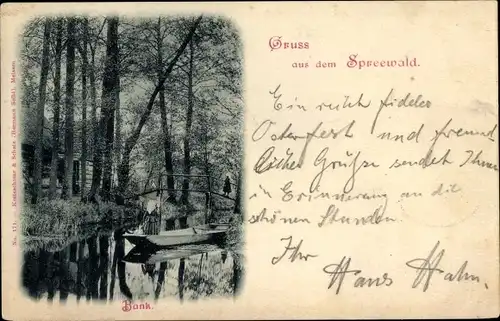 Gruss
aus dem Spreewald.
Ein recht fideles
Osterfest und freund
liche Grüße sendet Ihnen
in Erinnerung an die
schönen Stunden
Ihr Hans Hahn.
Bank.